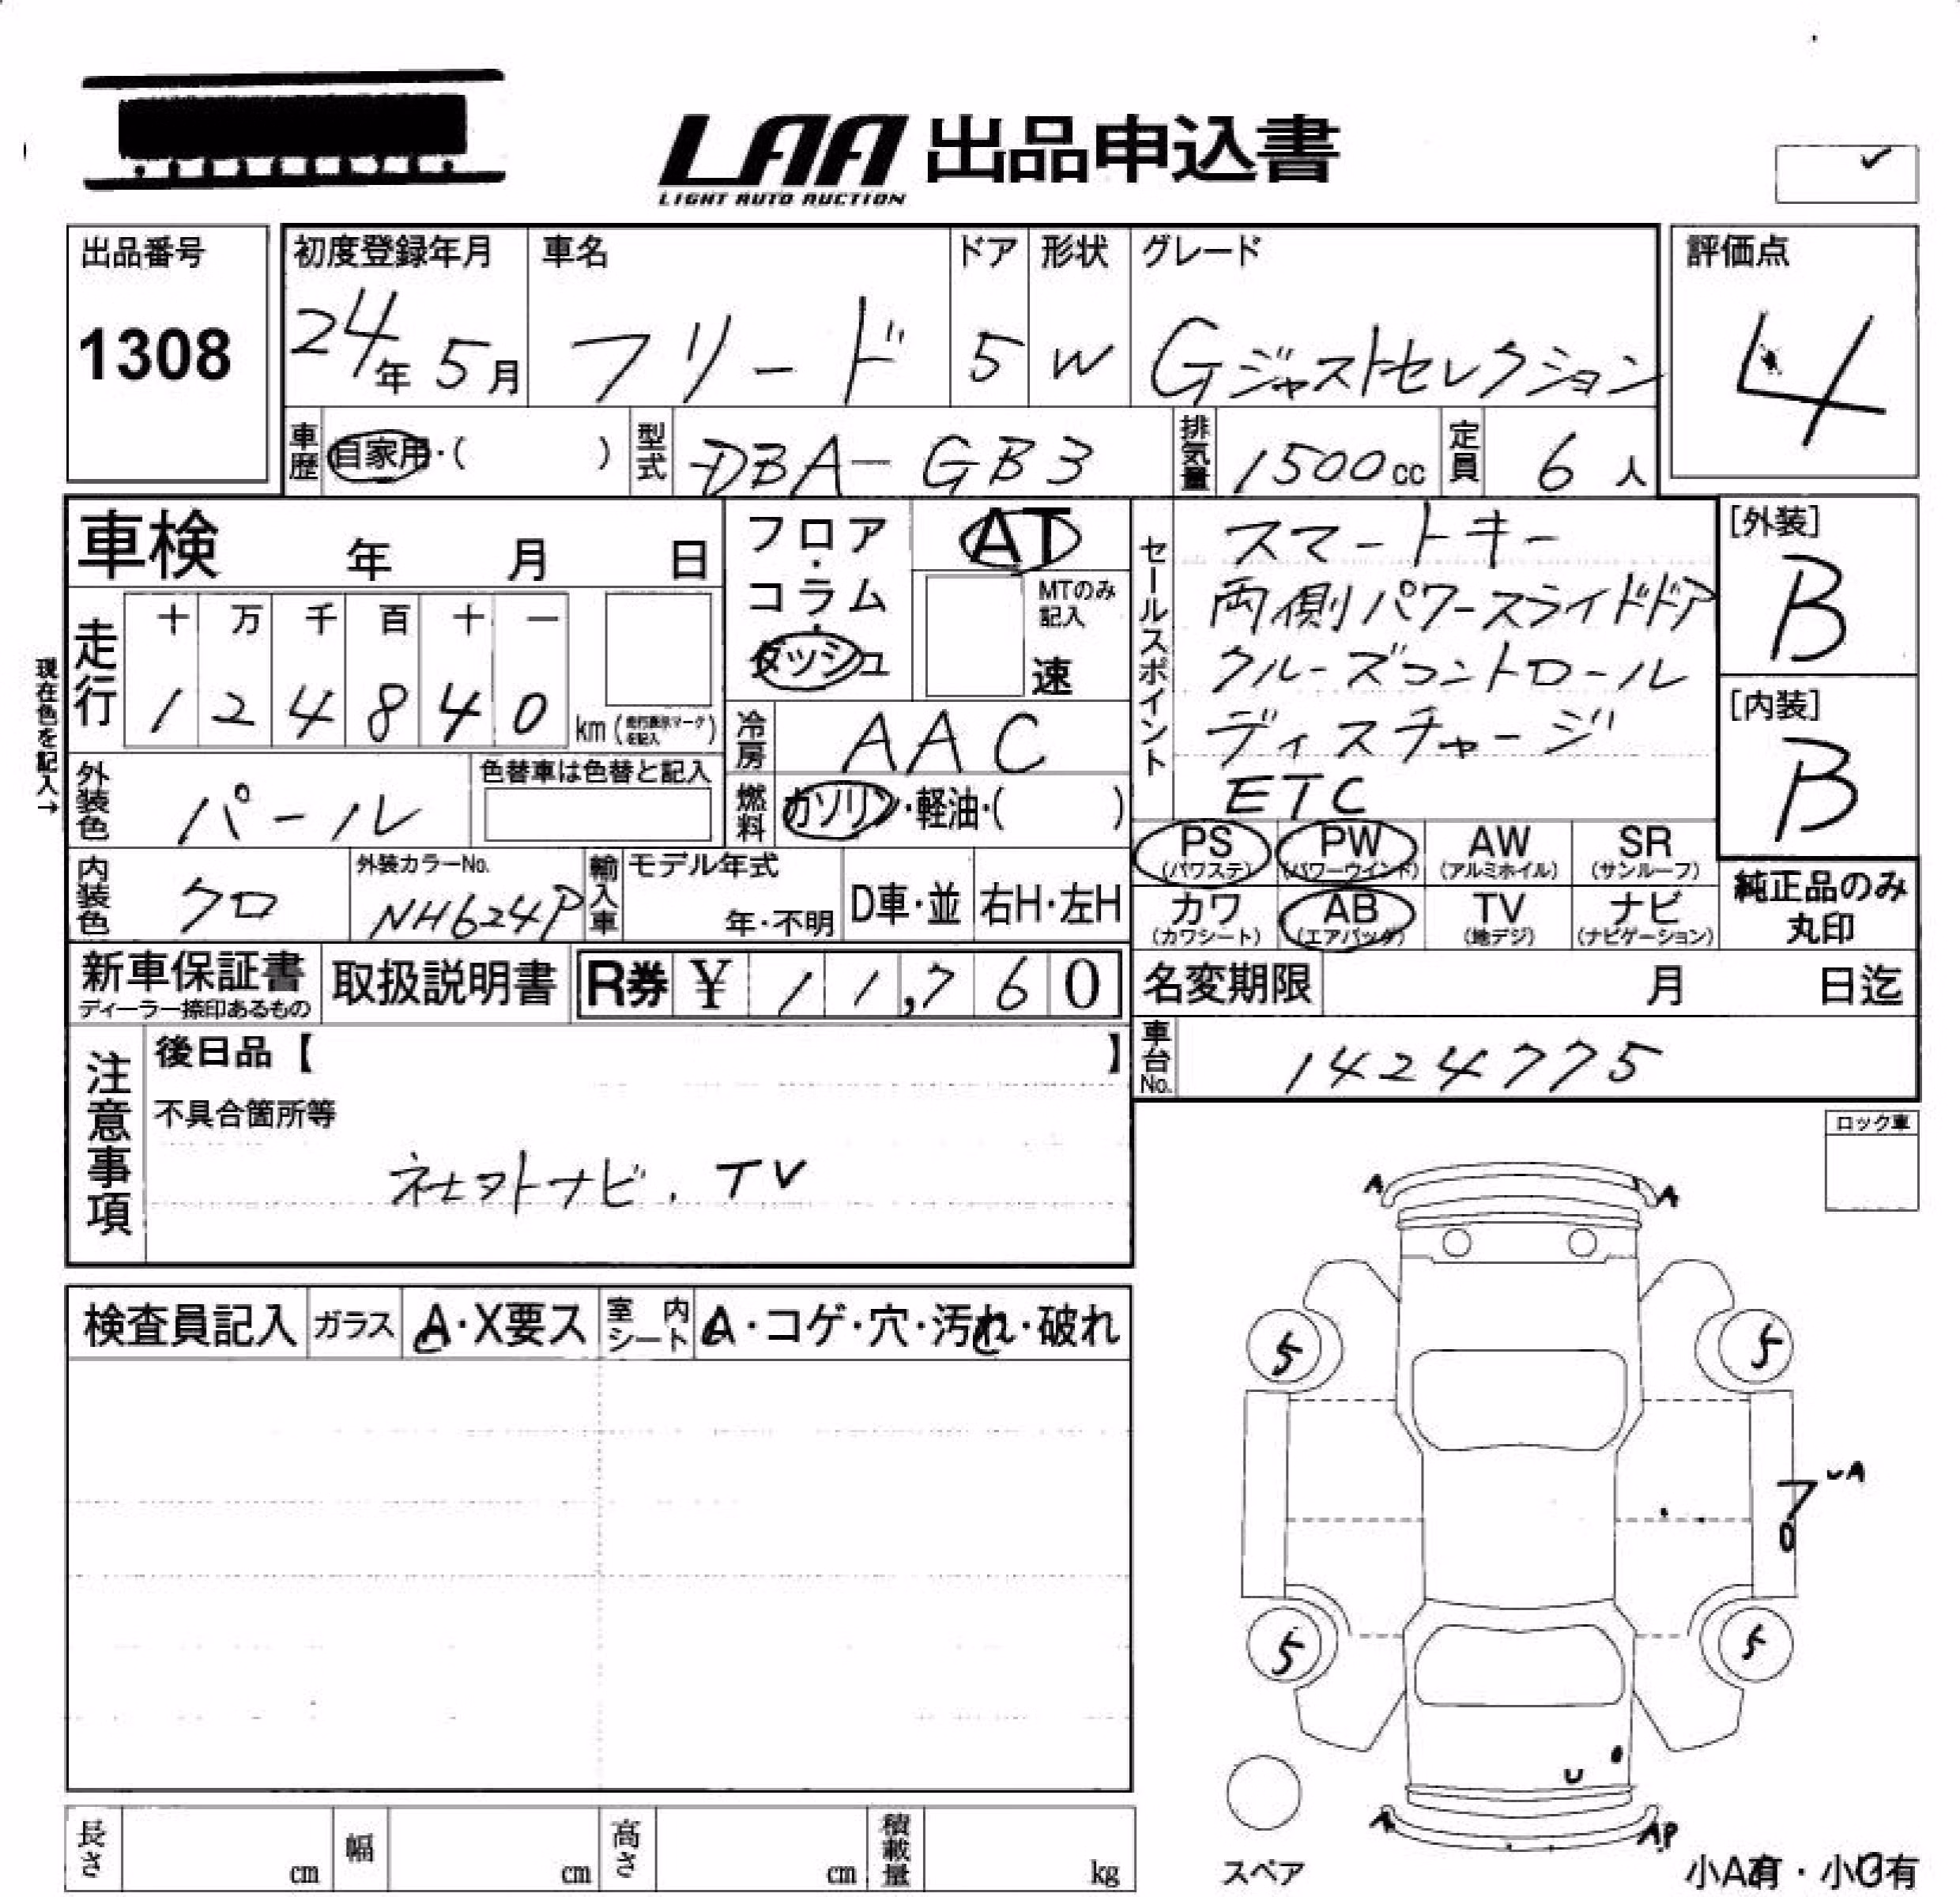 LAA 出品申込書
LIGHT AUTO AUCTION
出品番号
1308
初度登録年月 車名 ドア 形状 グレード
24年 5月 フリード 5 W Gジャストセレクション
評価点
4
車歴 自家用・( ) 型式 DBA-GB3 排気量 1500cc 定員 6人
車検 年 月 日
フロア・コラム・ダッシュ
AT
MTのみ記入
速
現在色を記入→
走行
十 万 千 百 十 一
1 2 4 8 4 0 km (走行表示マークを記入)
冷房 AAC
外装色 パール
色替車は色替と記入
燃料 ガソリン・軽油・( )
セールスポイント
スマートキー
両側パワースライドドア
クルーズコントロール
ディスチャージ
ETC
[外装]
B
[内装]
B
PS (パワステ) PW (パワーウインド) AW (アルミホイル) SR (サンルーフ)
カワ (カワシート) AB (エアバッグ) TV (地デジ) ナビ (ナビゲーション)
純正品のみ
丸印
内装色 クロ
外装カラーNo.
NH624P
輸入車 モデル年式
年・不明 D車・並 右H・左H
新車保証書
ディーラー捺印あるもの
取扱説明書
R券 ¥ 11,760
名変期限 月 日迄
車台No. 1424775
注意事項
後日品【 】
不具合箇所等
社外ナビ. TV
ロック車
検査員記入 ガラス A・X要ス 室内シート A・コゲ・穴・汚れ・破れ
A A
5 5
UA
7
5 5
U
A AP
スペア
小A有・小U有
長さ cm 幅 cm 高さ cm 積載量 kg